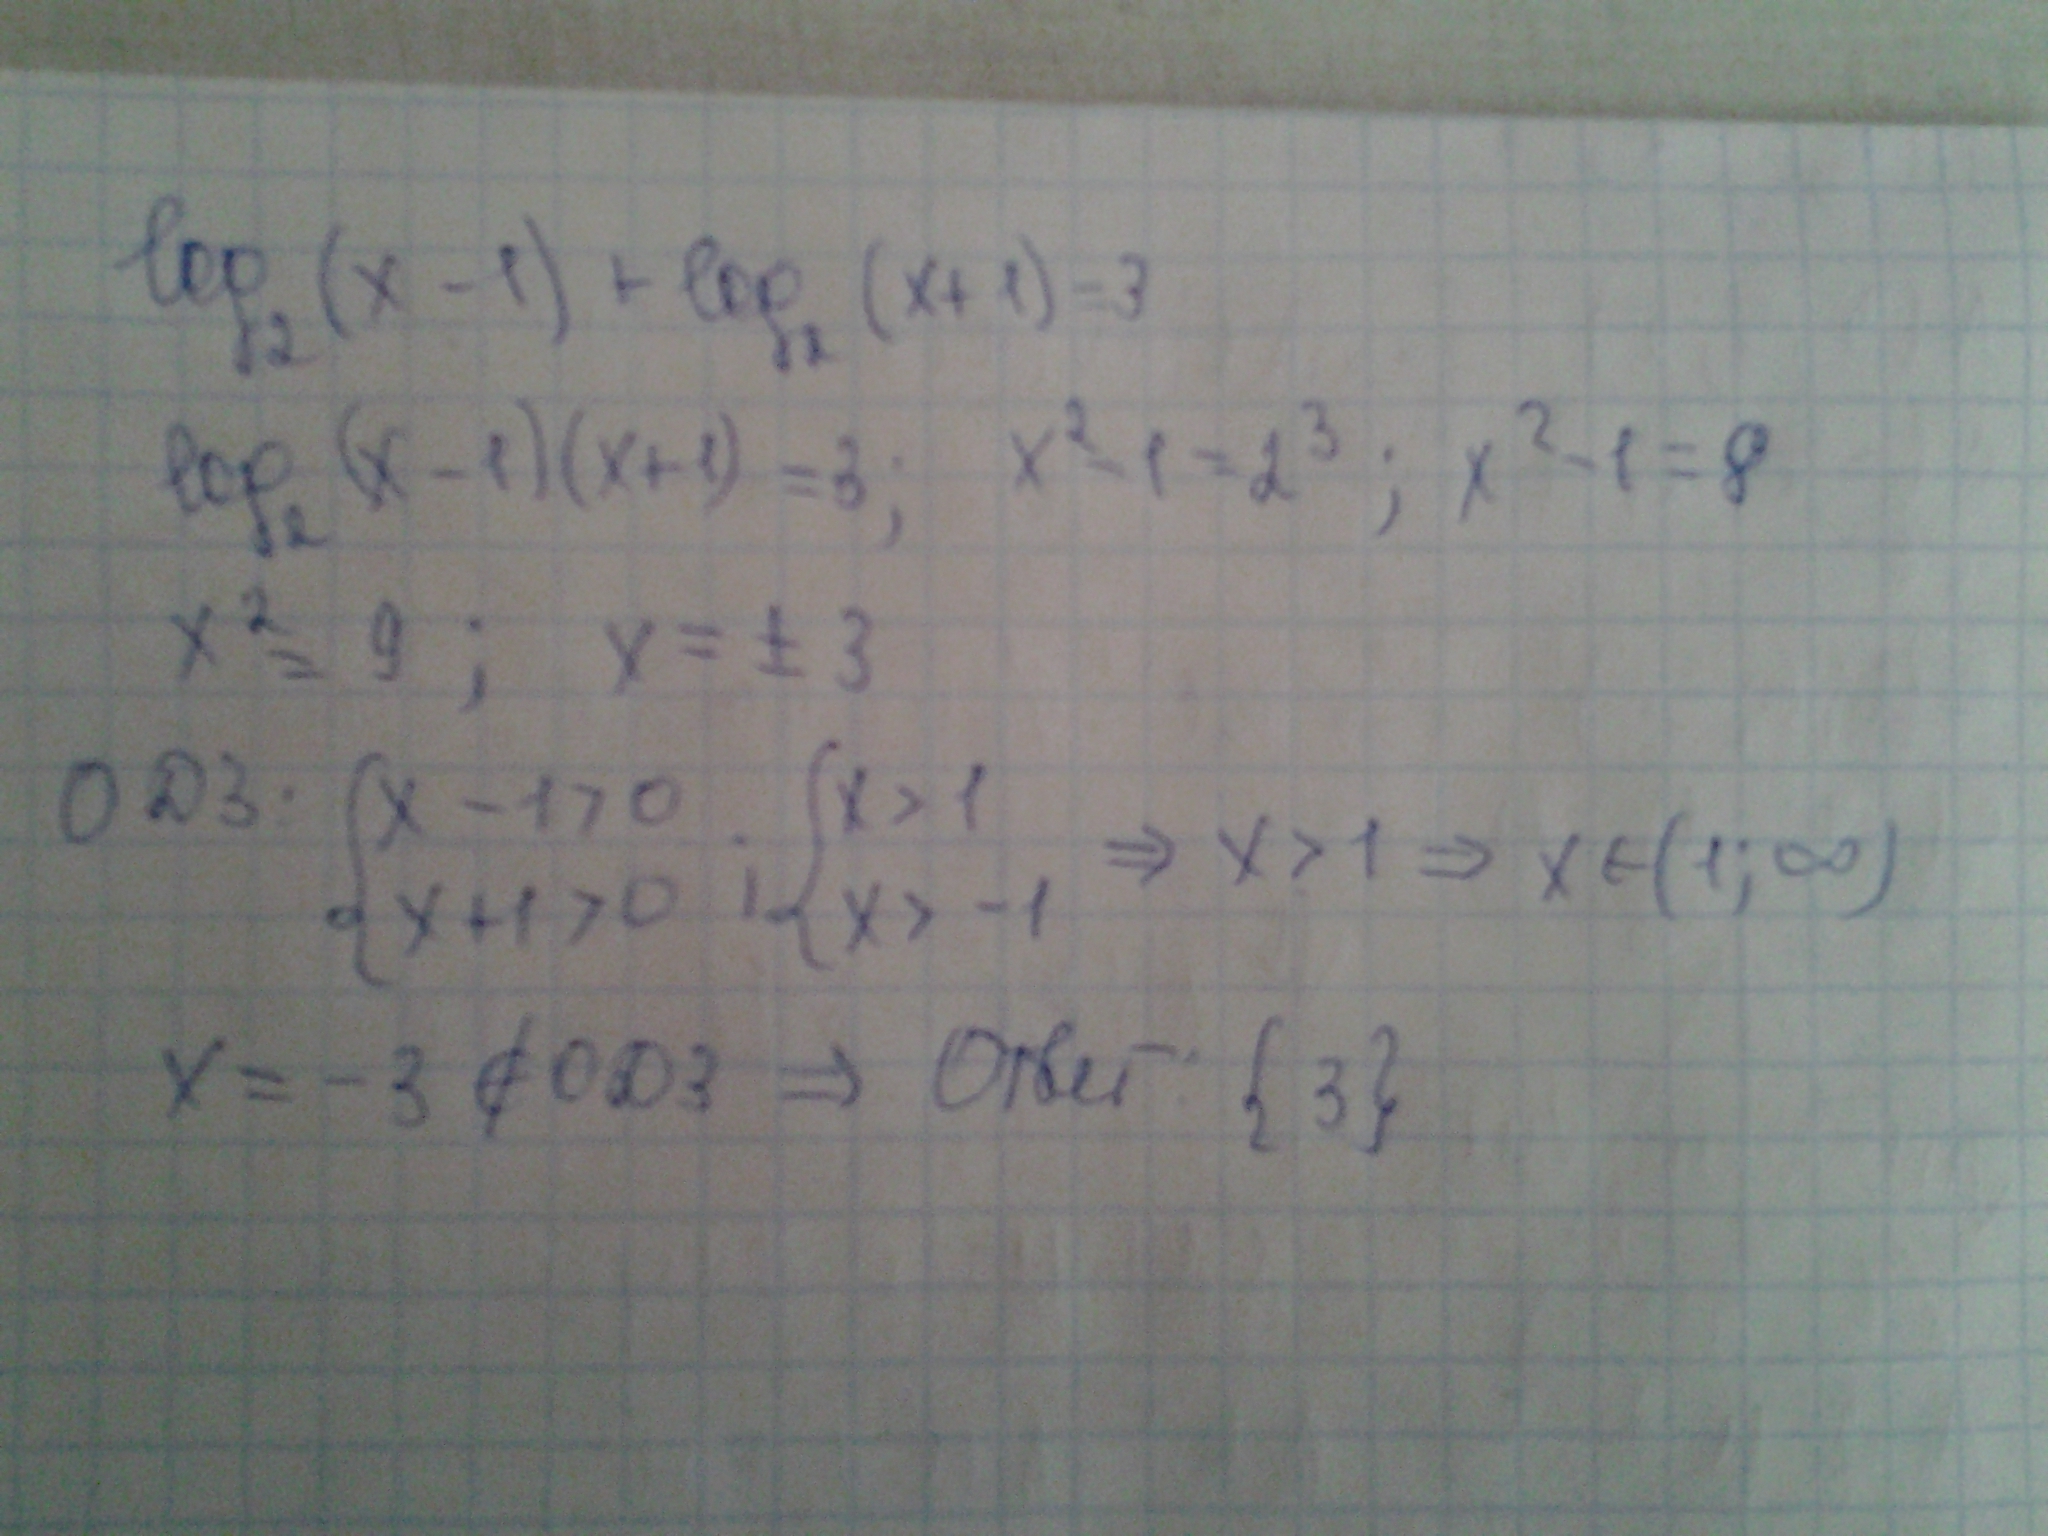 log₂(x-1)+log₂(x+1)=3
log₂(x-1)(x+1)=3; x²-1=2³; x²-1=8
x²=9; x=±3
ОДЗ: {x-1>0 ; {x>1 ⇒ x>1 ⇒ x∈(1;∞)
{x+1>0 {x>-1
x=-3∉ОДЗ ⇒ Ответ: {3}